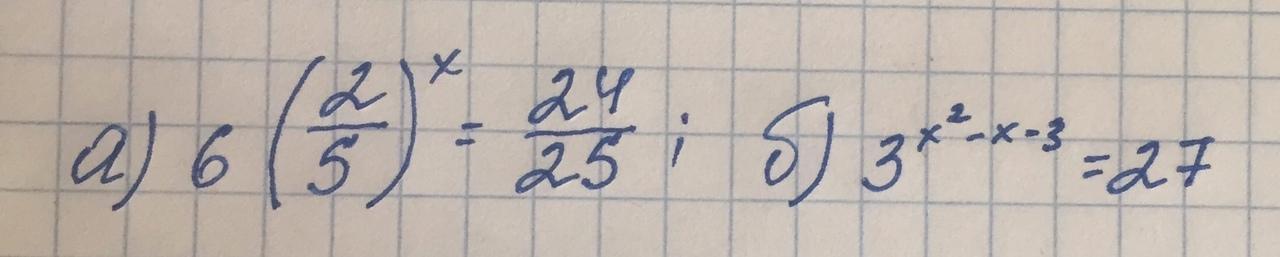 а) 6 (2/5)^x = 24/25 ; б) 3^(x²-x-3) = 27